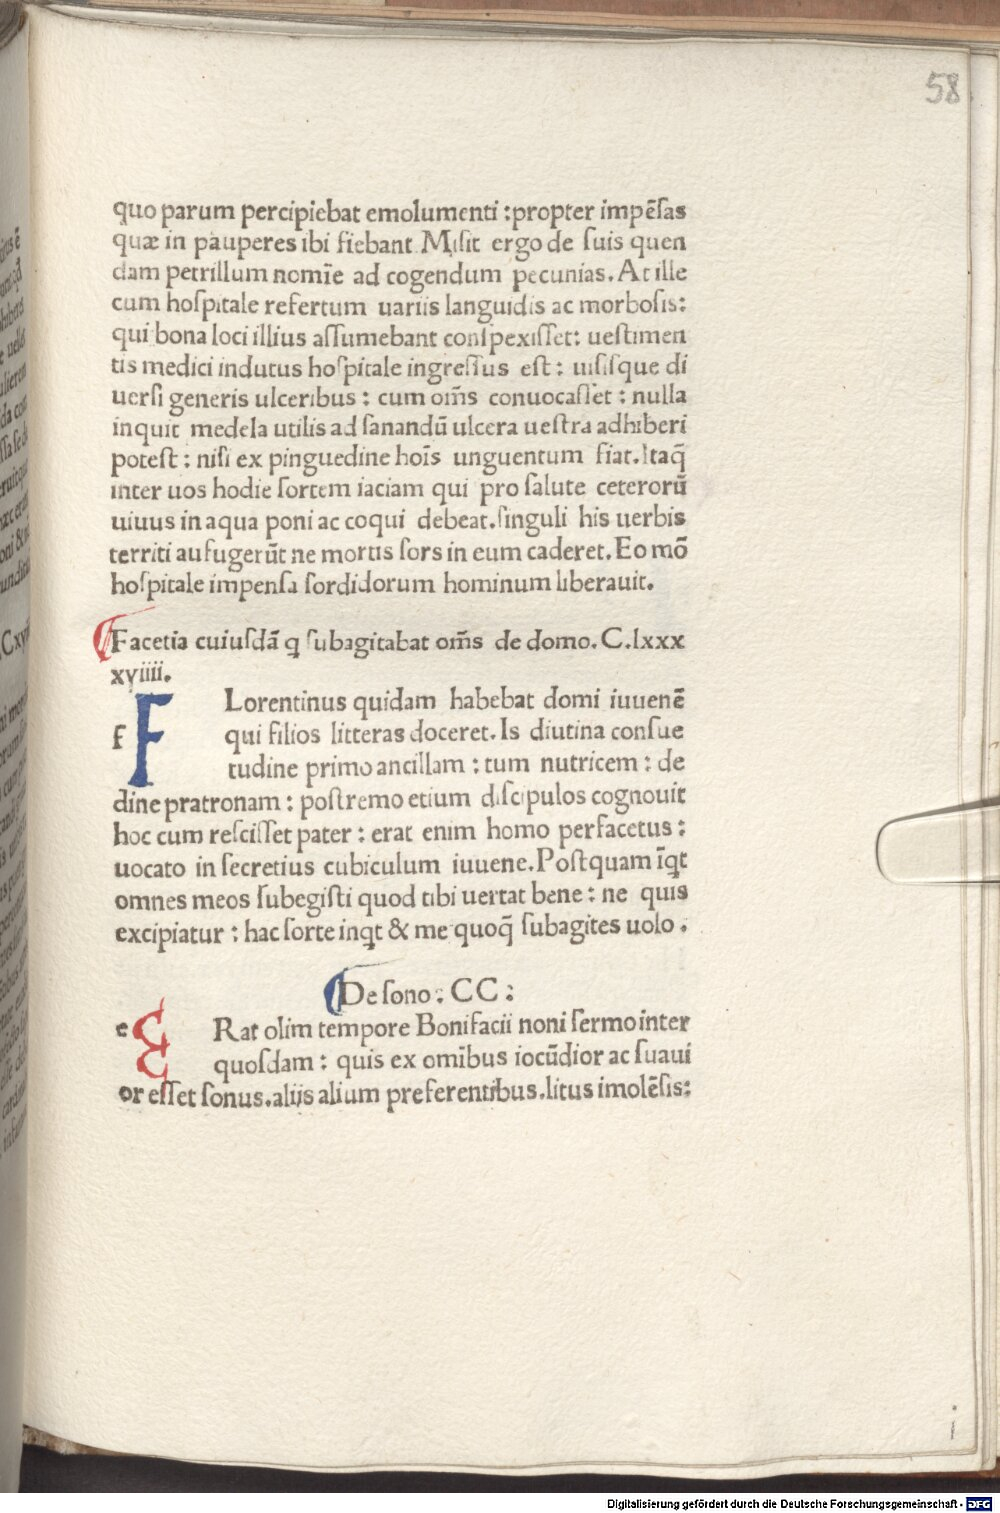 58
quo parum percipiebat emolumenti :propter impēſas
quæ in pauperes ibi fiebant. Miſit ergo de ſuis quen
dam petrillum nomīe ad cogendum pecunias. At ille
cum hoſpitale refertum uariis languidis ac morboſis:
qui bona loci illius aſſumebant conſpexiſſet: ueſtimen
tis medici indutus hoſpitale ingreſſus eſt: uiſiſque di
uerſi generis ulceribus : cum oīns conuocaſſet : nulla
inquit medela utilis ad ſanandū ulcera ueſtra adhiberi
poteſt : niſi ex pinguedine hoīs unguentum fiat. Itaq̄
inter uos hodie ſortem iaciam qui pro ſalute ceterorū
uiuus in aqua poni ac coqui debeat. ſinguli his uerbis
territi aufugerūt ne mortis ſors in eum caderet. Eo mō
hoſpitale impenſa ſordidorum hominum liberauit.
Facetia cuiuſdā q ſubagitabat om̄s de domo. C.lxxx
xviiii.
f F Lorentinus quidam habebat domi iuuenē
qui filios litteras doceret. Is diutina conſue
tudine primo ancillam : tum nutricem : de
dine pratronam : poſtremo etium diſcipulos cognouit
hoc cum reſciſſet pater : erat enim homo perfacetus :
uocato in ſecretius cubiculum iuuene. Poſtquam īqt
omnes meos ſubegiſti quod tibi uertat bene : ne quis
excipiatur : hac ſorte inqt & me quoq̄ ſubagites uolo .
De ſono : CC :
e E Rat olim tempore Bonifacii noni ſermo inter
quoſdam : quis ex omībus iocūdior ac ſuaui
or eſſet ſonus. aliis alium preferentibus. litus imolēſis:
i
Digitalisierung gefördert durch die Deutsche Forschungsgemeinschaft - DFG